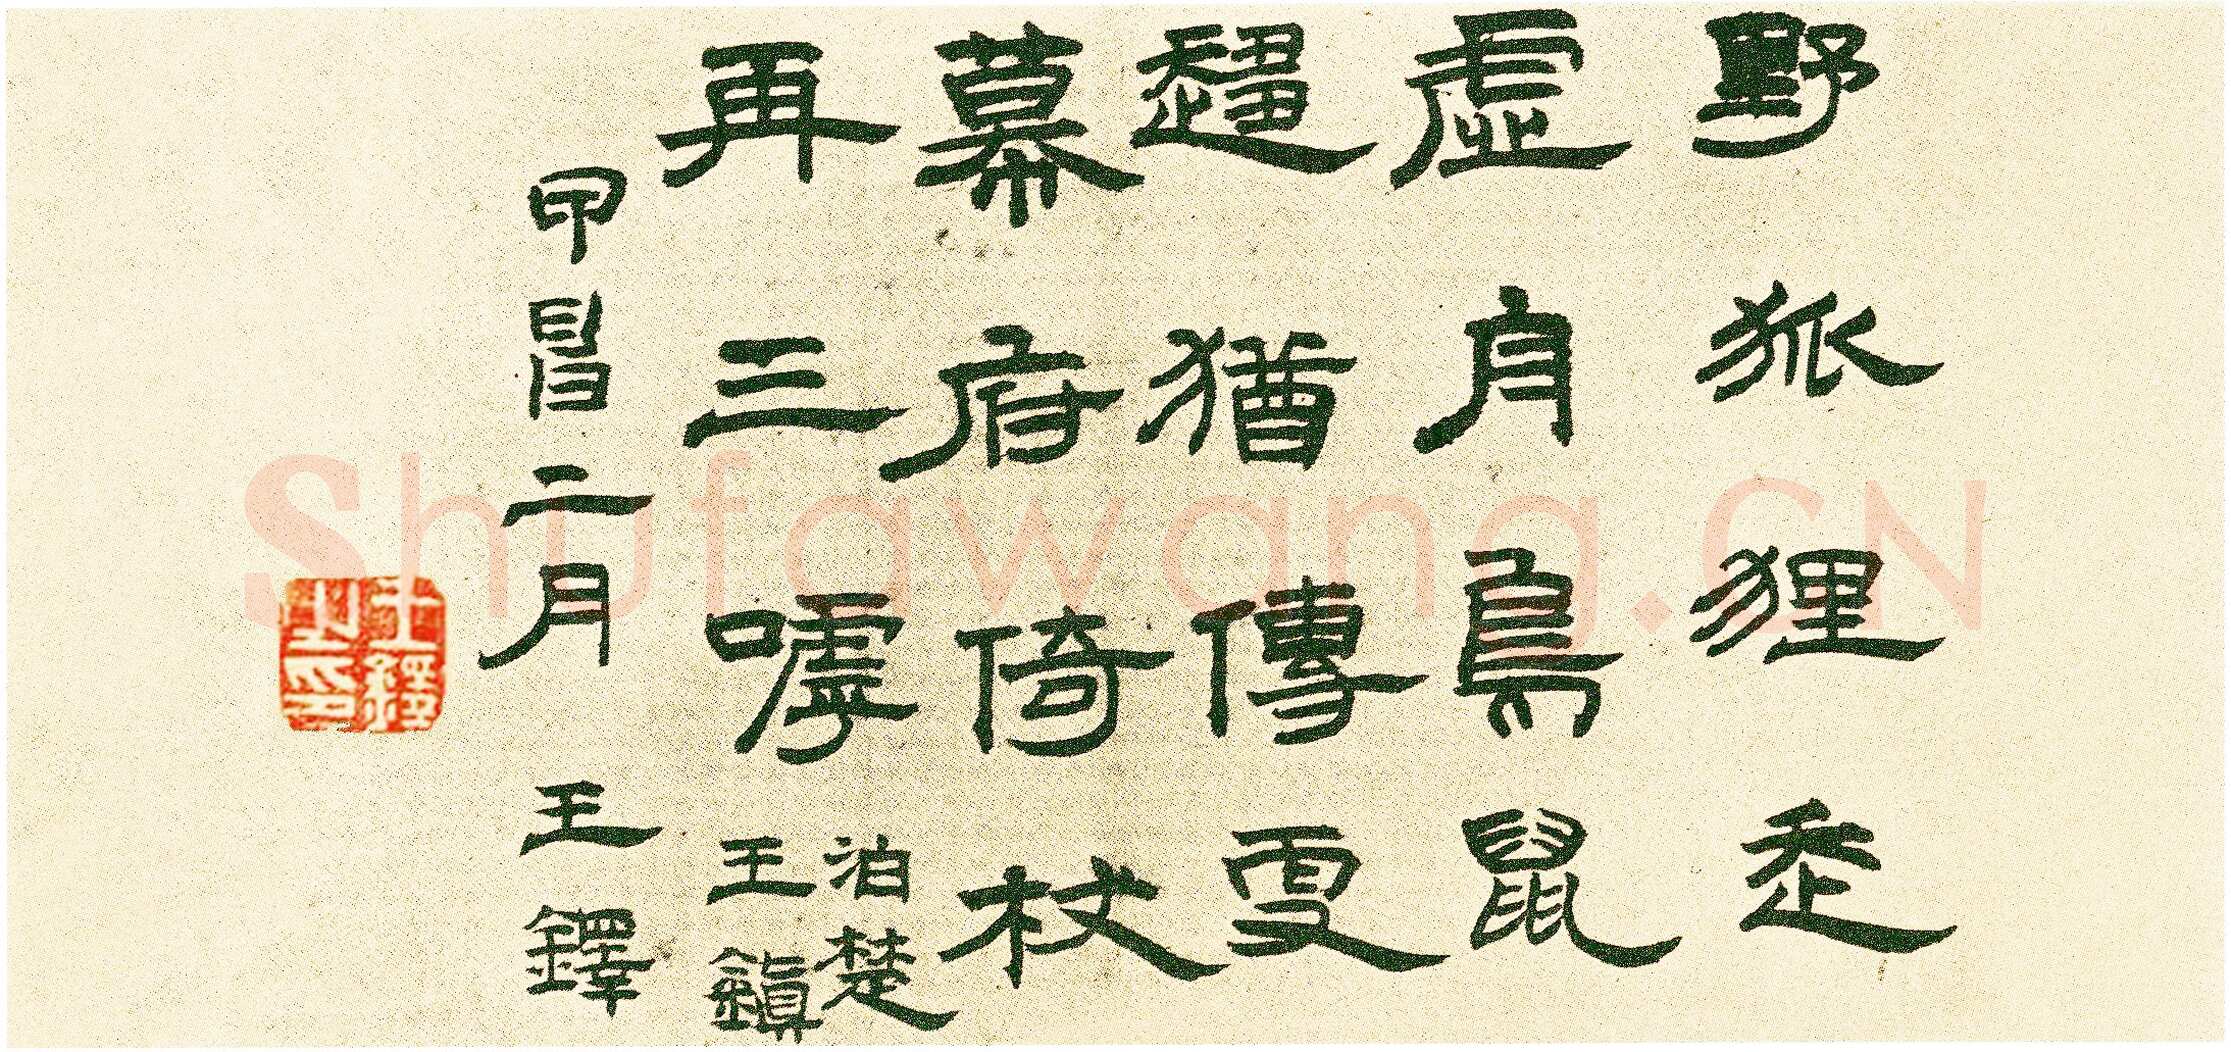 野狐狸走
虛舟鳥鼠
趨猶傳更
幕府倚杖
再三嘑
泊楚
王鎮
甲申二月 王鐸
王鐸之印
Shufawang.CN